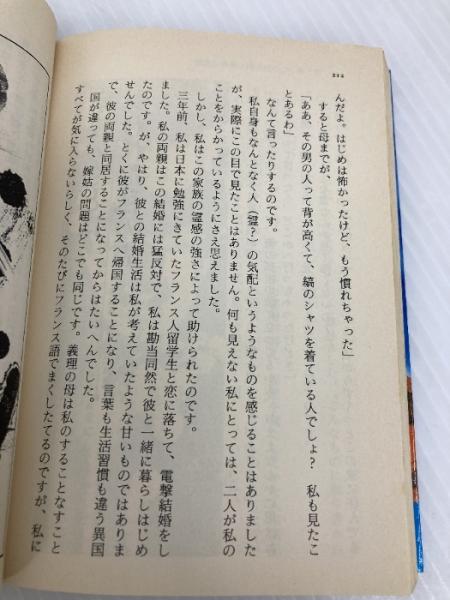 224
んだよ。はじめは怖かったけど、もう慣れちゃった」
すると母までが、
「ああ、その男の人って背が高くて、縞のシャツを着ている人でしょ? 私も見たこ
とあるわ」
なんて言ったりするのです。
私自身もなんとなく人(霊?)の気配というようなものを感じることはありました
が、実際にこの目で見たことはありません。何も見えない私にとっては、二人が私の
ことをからかっているようにさえ思えました。
しかし、私はこの家族の霊感の強さによって助けられたのです。
三年前、私は日本に勉強にきていたフランス人留学生と恋に落ちて、電撃結婚をし
ました。私の両親はこの結婚には猛反対で、私は勘当同然で彼と一緒に暮らしはじめ
たのです。が、やはり、彼との結婚生活は私が考えていたような甘いものではありま
せんでした。とくに彼がフランスへ帰国することになり、言葉も生活習慣も違う異国
で、彼の両親と同居することになってからはたいへんでした。
国が違っても、嫁姑の問題はどこでも同じです。義理の母は私のすることなすこと
すべてが気に入らないらしく、そのたびにフランス語でまくしたてるのですが、私に